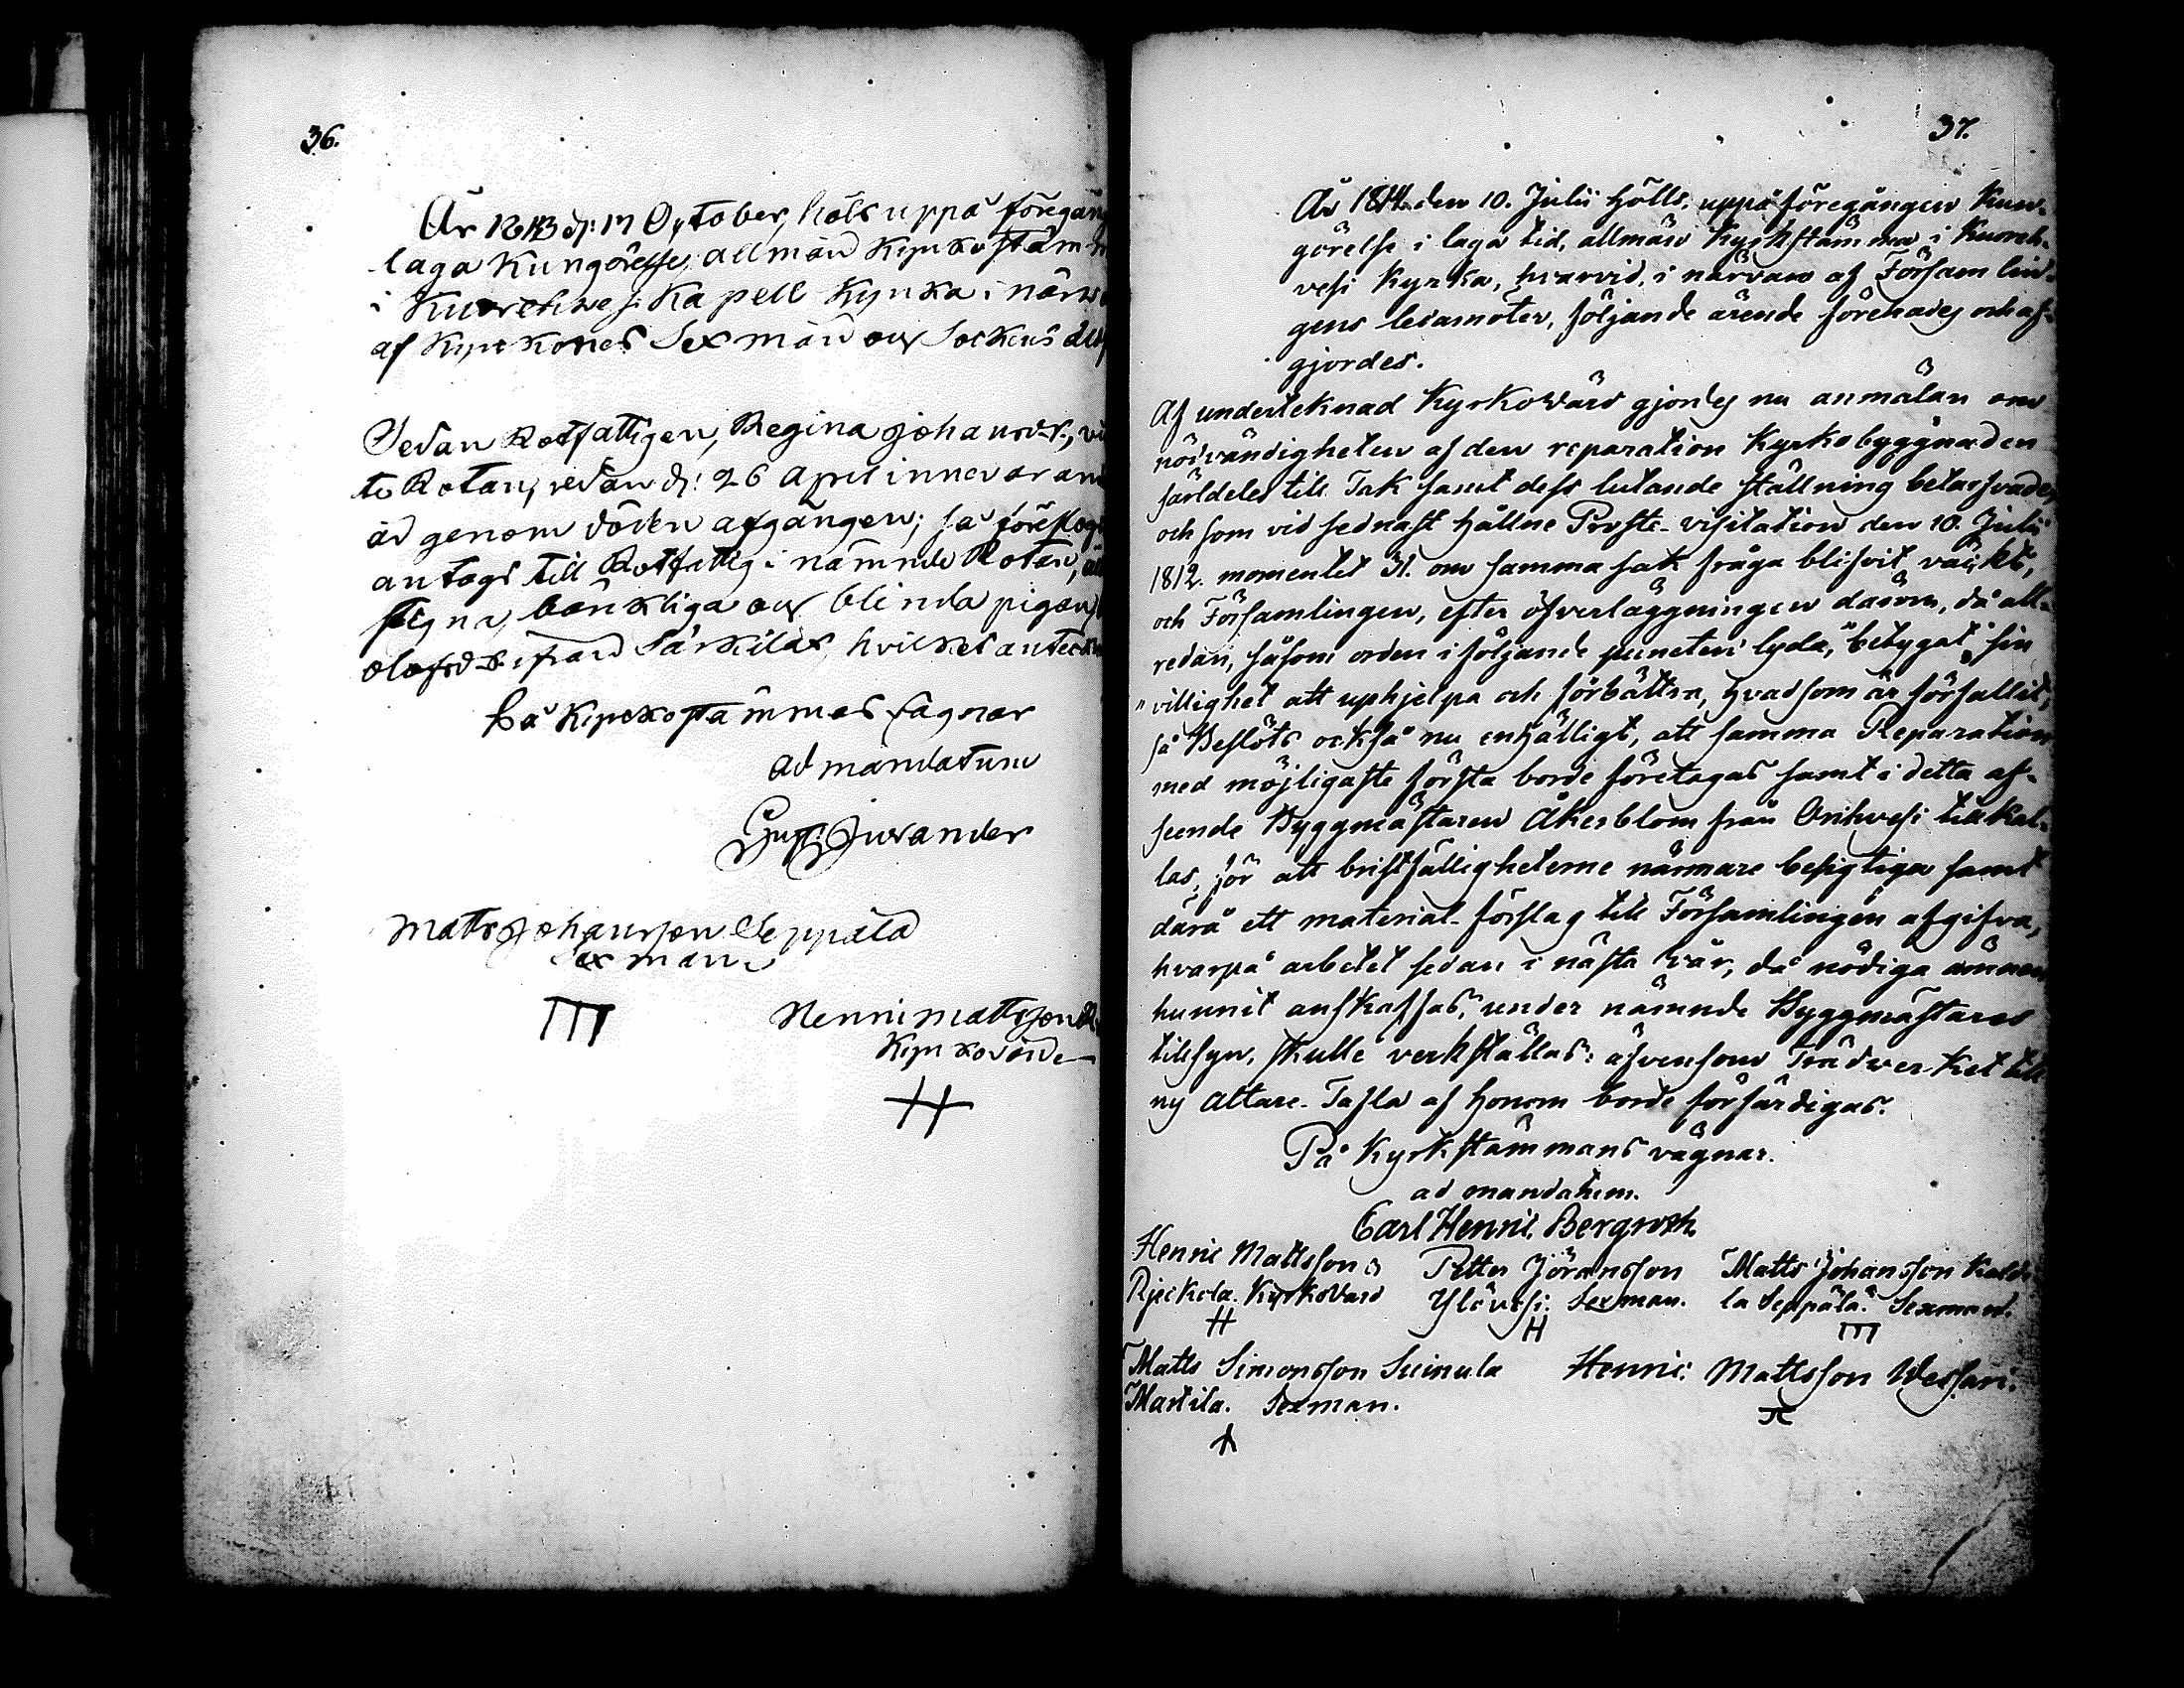 36.
År 1813 d: 17 October, hölts uppå föregån
laga Kungörelse, allmän Kyrkostäm
i Kuorehwesi Kapell Kyrka i närw
af Kyrkones Sexmän och Sockens
Sedan Rotfattigen, Regina Johansd:r,
te Rotan, redan d: 26 April innevaran
år genom döden afgången; så föreslogs
antogs till Rotfattig i nämnde Rotan,
bänkliga och blinda pigan,
Olofsd:r ifrån Särkilax, hvilket anteckn
På Kyrkostämmas vägnar
ad mandatum
Gust. Juvander
Matts Johansson Seppälä
Sexman
Henric Mattsson R
Kyrkovärde
37.
År 1814 den 10. Julii hölls, uppå föregången Kun-
görelse i laga tid, allmän Kyrkstämma i Kuoreh-
vesi Kyrka, hvarvid, i närvaro af Församlin-
gens ledamöter, följande ärende förehades och af-
gjordes.
Af undertecknad Kyrkovärd gjordes nu anmälan om
nödvändigheten af den reparation Kyrkobyggnaden
särdeles till Tak samt dess lutande ställning betarfvade,
och som vid sednast hållne Prosts-visitation den 10. Julii
1812. momentet 31. om samma sak fråga blifvit väckt,
och Församlingen, efter öfverläggningen därom, då all-
redan, såsom orden i följande puncten lyda, "betygat sin
"villighet att uphjelpa och förbättra, hvad som är förfallit,
så Beslöts också nu enhälligt, att samma Reparation
med möjligaste första borde företagas samt i detta af-
seende Byggmästaren Åkerblom från Orihvesi tillkal-
las, för att bristfälligheterne närmare besigtiga samt
därå ett material-förslag till Församlingen afgifva,
hvarpå arbetet sedan i nästa vår, då nödiga ämnen
hunnit anskaffas, under nämnde Byggmästares
tillsyn, skulle verkställas: äfvensom Trädwerket till
ny Altare-Tafla af honom borde förfärdigas.
På Kyrkstämmans vägnar.
ad mandatum.
Carl Henric Bergroth
Henric Mattsson Petter Jöransson Matts Johansson Kald
Kyrkovärd Ylävesi. Sexman. la Seppälä. Sexman.
H H
Matts Simonsson Suinula Henric Mattsson Wessari.
Martila. Sexman.